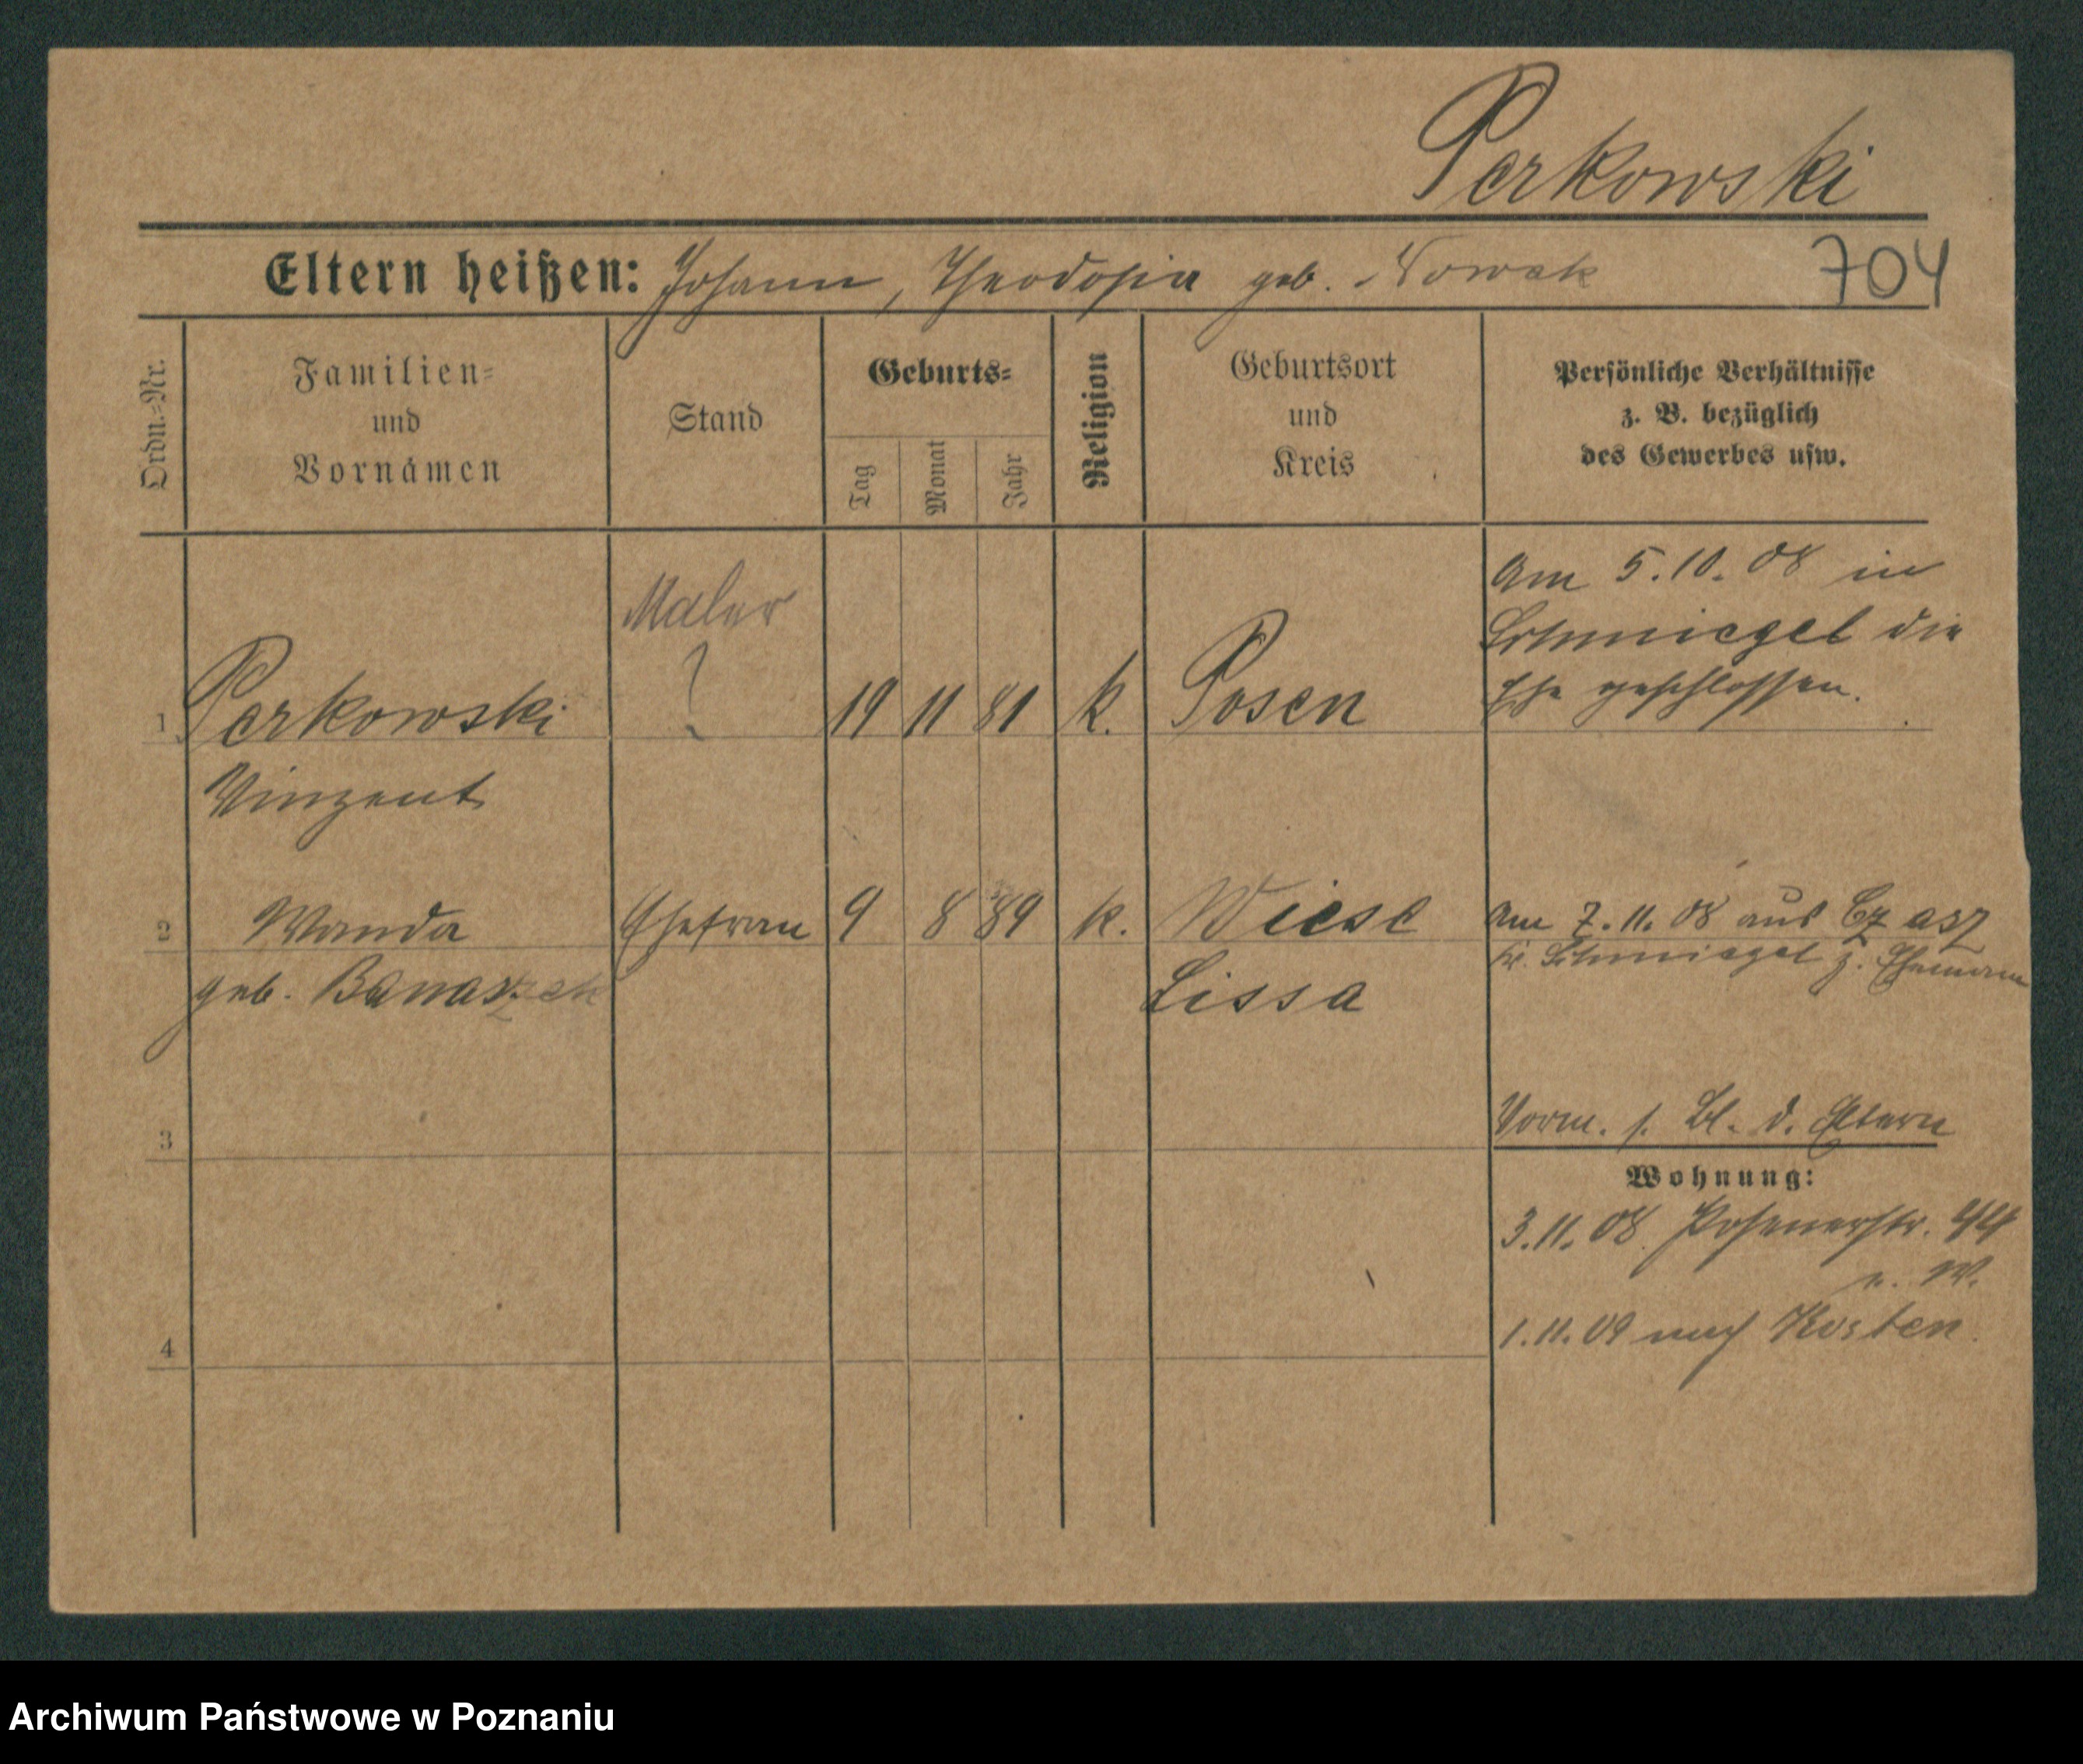 Perkowski
Eltern heißen: Johann, Theodosia geb. Nowak
704
Ordn.-Nr.
Familien-
und
Vornamen
Stand
Geburts-
Tag
Monat
Jahr
Religion
Geburtsort
und
Kreis
Persönliche Verhältnisse
z. B. bezüglich
des Gewerbes usw.
1
Perkowski
Vinzent
Maler
?
19 11 81 k. Posen
Am 5.10.08 in
Schmiegel die
Ehe geschlossen.
2
Wanda
geb. Banaszak
Ehefrau 9 8 89 k. Wiese
Lissa
Am 7.11.08 aus Czasz
Kr. Schmiegel z. Ehemann
3
Vorm. s. Bl. d. Eltern
Wohnung:
3.11.08. Posenerstr. 44
W.
4
1.11.09 nach Kosten.
Archiwum Państwowe w Poznaniu